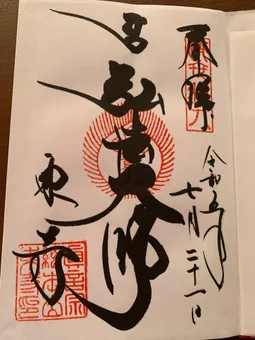 奉拝
令和五年
七月二十一日
弘法大師
東寺